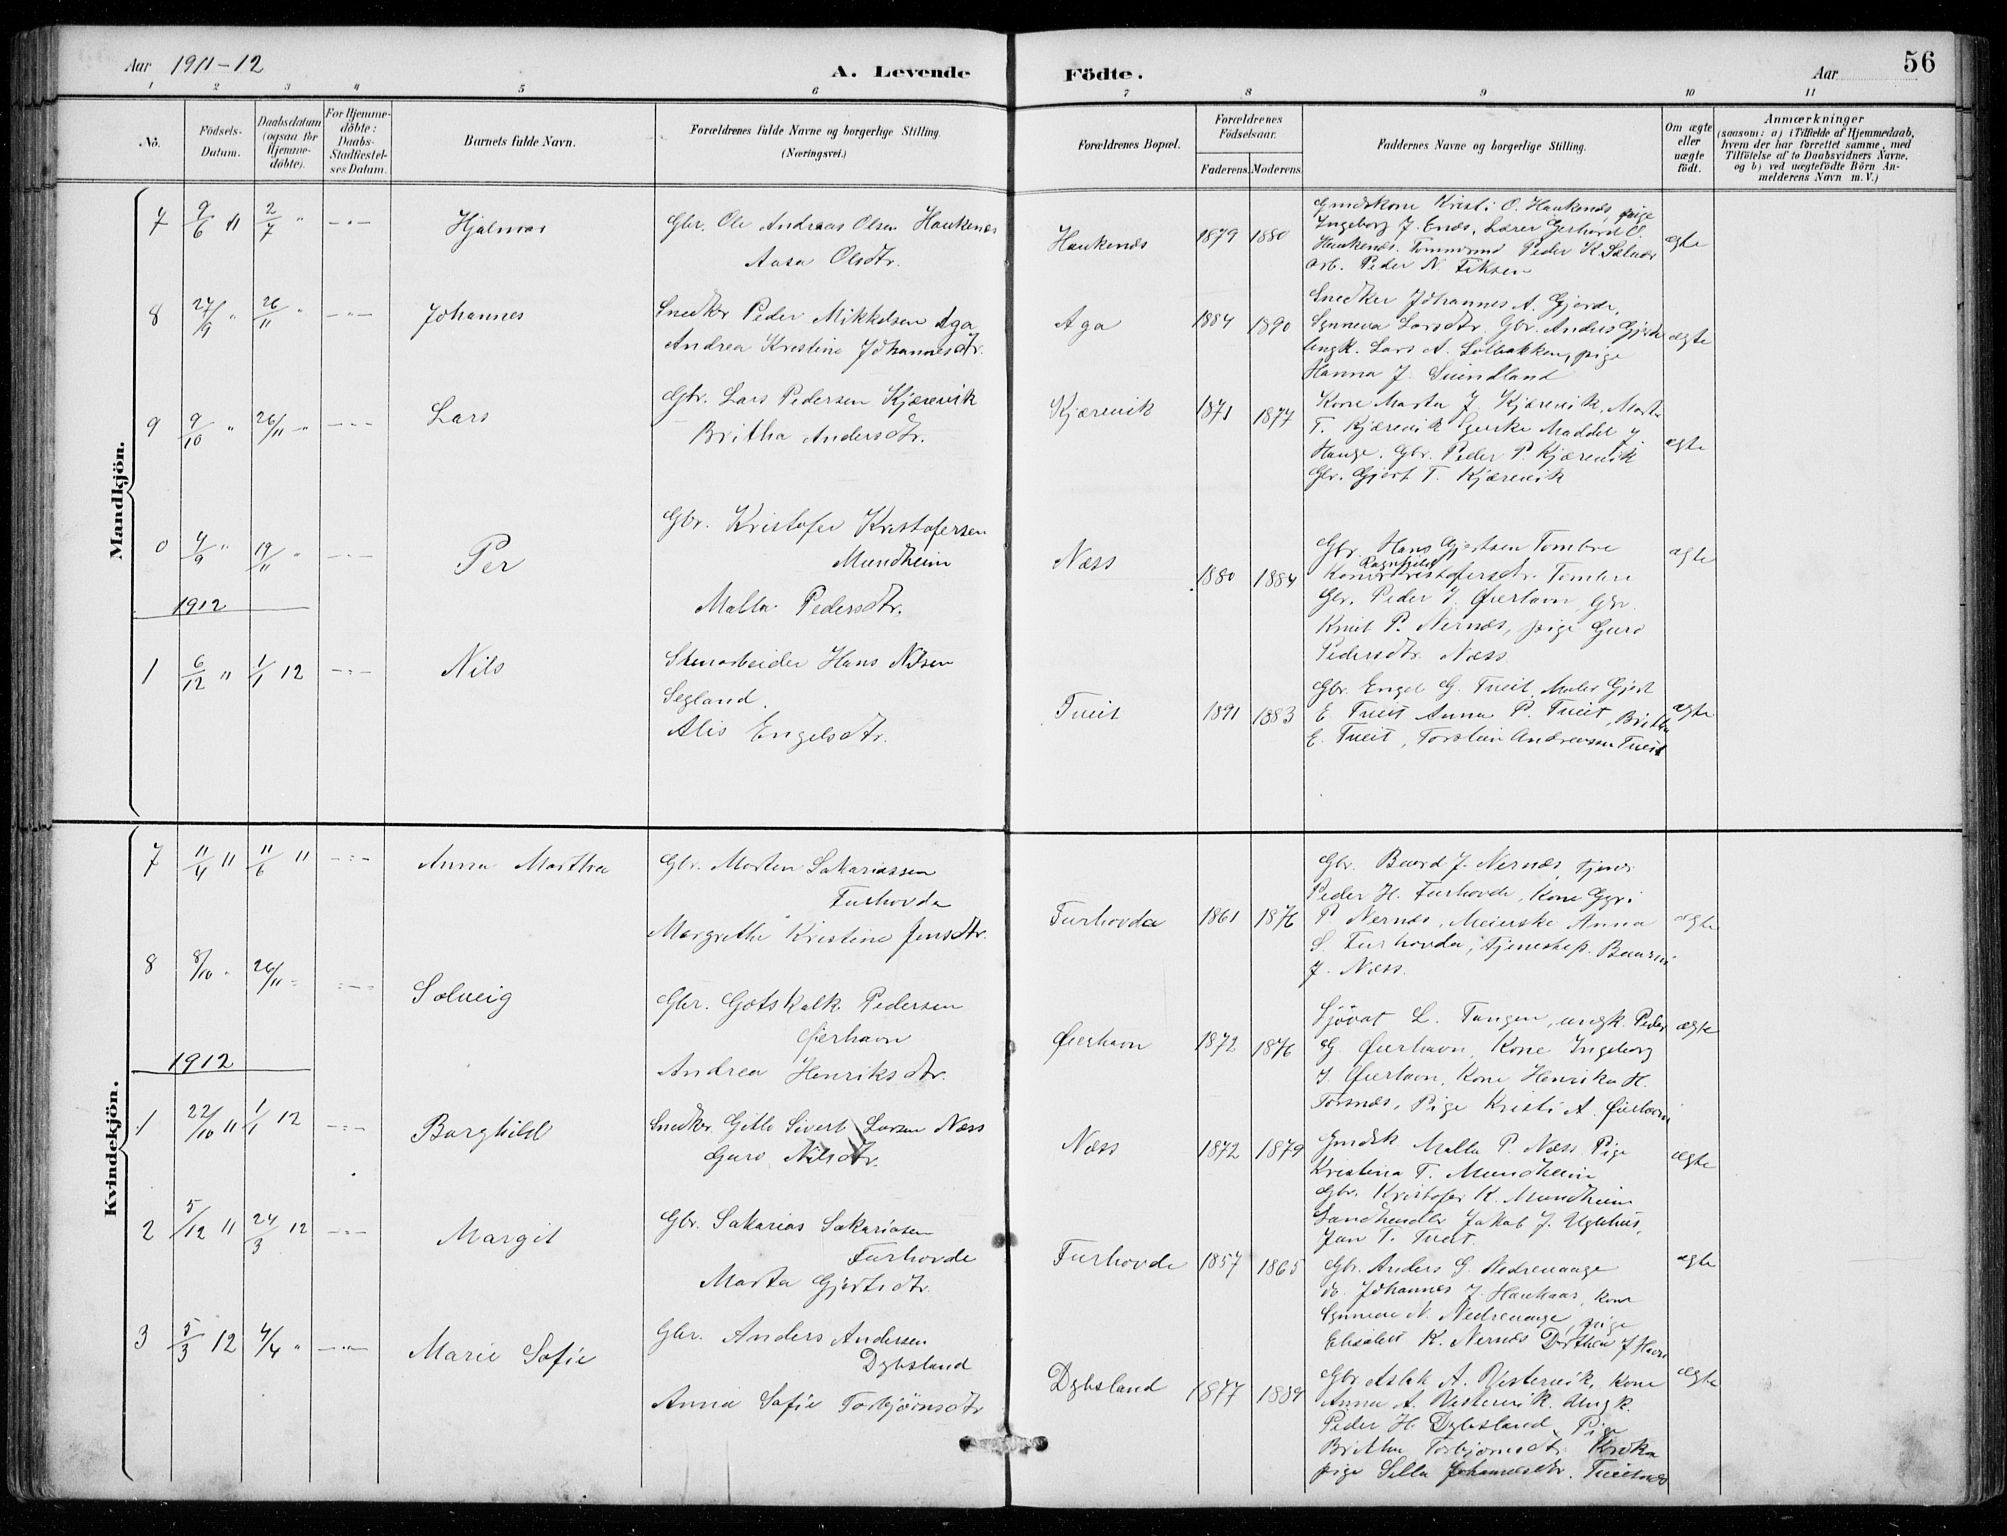 Aar 1911-12
A. Levende
Födte.
Aar
56
1 2 3 4 5 6 7 8 9 10 11
No.
Födsels-Datum.
Daabsdatum (ogsaa for Hjemmedöbte).
For Hjemmedöbte: Daabs-Stadfæstelses Datum.
Barnets fulde Navn.
Forældrenes fulde Navne og borgerlige Stilling.
(Næringsvei.)
Forældrenes Bopæl.
Forældrenes Fødselsaar.
Faderens. Moderens.
Faddernes Navne og borgerlige Stilling.
Om ægte eller uægte født.
Anmærkninger
(saasom: a) i Tilfælde af Hjemmedaab, hvem der har forrettet samme, med Tilföielse af to Daabsvidners Navne, og b) ved uægtefödte Börn Anmelderens Navn m. V.)
Mandkjön.
7 9/6 11 2/7 " -"- Hjalmar
Gbr. Ole Andreas Olsen Haukenæs
Aasa Olsdtr.
Haukenæs 1879 1880
Gmdskone Kristi O. Haukenæs, pige
Ingeborg J. Enæs, Lærer Gerhard O.
Haukenæs. Tømmermd Peder K.
arb. Peder N. Eiksen
ægte
8 27/9 " 26/11 " -"- Johannes
Snedker Peder Mikkelsen Aga
Andrea Kristine Johannesdtr.
Aga 1884 1890
Snedker Johannes A. Gjerde,
Synneva Larsdtr. Gbr. Anders Gjerde
Ungk. Lars A. Solbakken, pige
Hanna J.
ægte
9 9/10 " 26/11 " -"- Lars
Gbr. Lars Pedersen Kjærevik
Britha Andersdtr.
Kjærevik 1871 1877
Kone Marta J. Kjærevik, Marta
T. Kjærevik
Hauge. Gbr. Peder P. Kjærevik
Gbr. Gjert T. Kjærevik
ægte
0 4/9 " 19/11 " -"- Per
Gbr. Kristofer Kristofersen
Mundheim
Malla Pedersdtr.
Næss 1880 1884
Gbr. Hans Gjertsen Tombre
Kone Ragnhild Kristofersdtr. Tombre
Gbr. Peder J. Øierhavn, Gbr.
Knut P. Nernæs, pige Guro
Pedersdtr. Næss
ægte
1912
1 6/12 " 1/1 12 -"- Nils
Stenarbeider Hans Nilsen
Segland.
Alis Engelsdtr.
Tveit 1891 1883
Gbr. Engel G. Tveit, Maler Gjert
E. Tveit Anna P. Tveit, Britha
E. Tveit, Torstein Andreassen Tveit
ægte
Kvindekjön.
7 11/4 " 11/6 " -"- Anna Martha
Gbr. Morten Sakariassen
Furhovda
Margrethe Kristine Jensdtr.
Furhovda 1861 1876
Gbr. Baard J. Nernæs, Tjener
Peder H. Furhovde, Kone Gyri
P. Nernæs, Meierske Anna
S. Furhovda, tjenestep.
J. Næss.
ægte
8 8/10 " 26/11 " -"- Solveig
Gbr. Gotskalk Pedersen
Øierhavn
Andrea Henriksdtr.
Øierhavn 1872 1876
Sjovat L. Tangen, ungk. Peder
G. Øierhavn, Kone Ingeborg
J. Øierhavn, Kone Henrika H.
Torsnæs, Pige Kristi A. Øierhavn
ægte
1912
1 22/10 11 1/1 12 -"- Borghild
Snedker Gitle Sivert Larsen Næss
Guro Nilsdtr.
Næss 1872 1879
Gmdsk. Malla P. Næss, Pige
Kristina T. Mundheim
Gbr. Kristofer K. Mundheim
Landhandler Jakob J. Uglehus,
Jan T. Tveit.
ægte
2 5/12 11 24/3 12 -"- Margit
Gbr. Sakarias Sakariasen
Furhovde
Marta Gjertsdtr.
Furhovde 1857 1865
Gbr. Anders G. Nedrevaage
do. Johannes J. Haukaas, kone
Synneve N. Nedrevaage, pige
Elisabet K. Nernæs Dorthea J.
ægte
3 5/3 12 4/4 " -"- Marie Sofie
Gbr. Anders Andersen
Dybsland
Anna Sofie Torbjørnsdtr
Dybsland 1877 1889
Gbr Aslak A. Vestervik, Kone
Anna A. Vestervik. Ungk.
Peder H. Dybsland, Pige
Britha Torbjørnsdtr.
pige Silla Johannesdtr. Tveitnæs
ægte